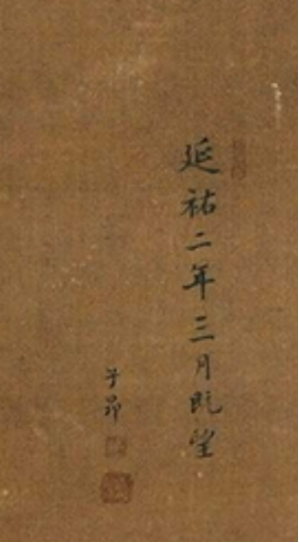 延祐二年三月既望
子昂